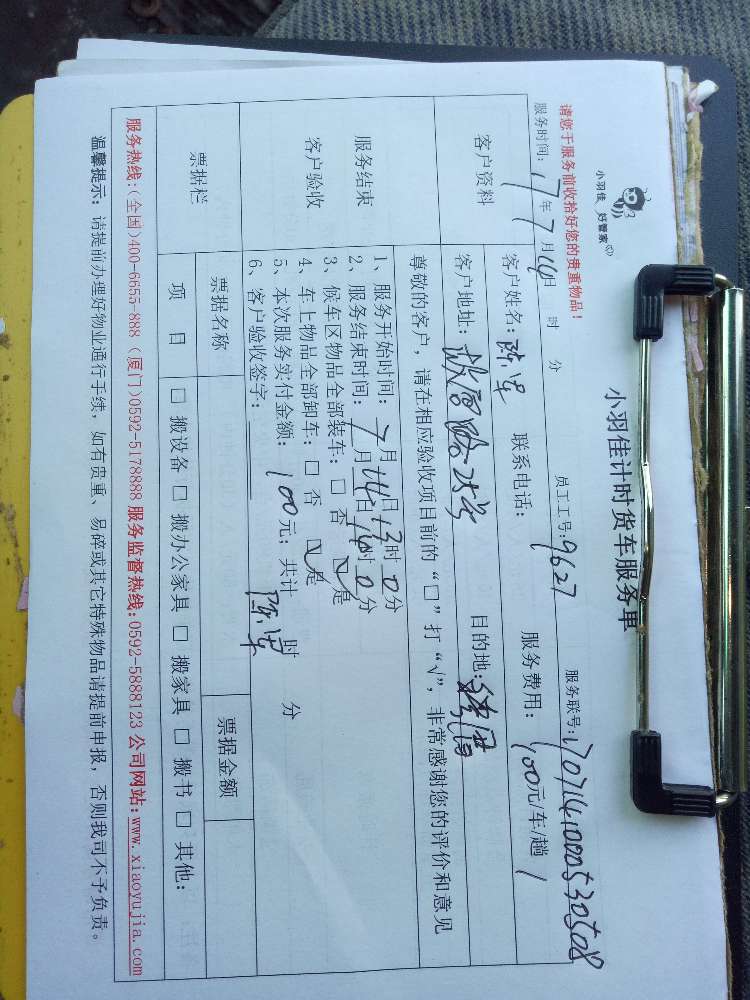 小羽佳 好管家
小羽佳计时货车服务单
请您于服务前收拾好您的贵重物品!
服务时间: 17年7月14日 时 分 员工工号: 9627 服务联号: 1707141000530508
客户资料
客户姓名: 陈军 联系电话: 服务费用: 100元/车/趟
客户地址: 25号 目的地:
服务结束
客户验收
尊敬的客户, 请在相应验收项目前的 “□” 打 “√”, 非常感谢您的评价和意见
1、服务开始时间: 7月14日13时0分
2、服务结束时间: 7月14日14时0分
3、候车区物品全部装车: □ 否 ☑ 是
4、车上物品全部卸车: □ 否 ☑ 是
5、本次服务实付金额: 100元; 共计 时 分
6、客户验收签字: 陈军
票据栏
票据名称 票据金额
项 目 □ 搬设备 □ 搬办公家具 □ 搬家具 □ 搬书 □ 其他:
服务热线:(全国)400-6655-888 (厦门)0592-5178888 服务监督热线:0592-5888123 公司网站:www.xiaoyujia.com
温馨提示: 请提前办理好物业通行手续, 如有贵重、易碎或其它特殊物品请提前申报, 否则我司不予负责。